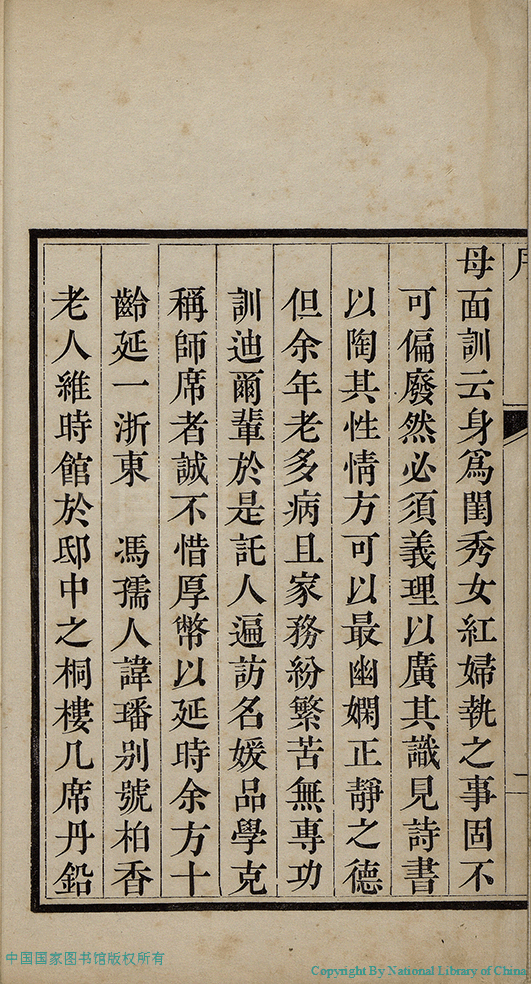 母面訓云身爲閨秀女紅婦執之事固不
可偏廢然必須義理以廣其識見詩書
以陶其性情方可以最幽嫻正靜之德
但余年老多病且家務紛繁苦無專功
訓迪爾輩於是託人遍訪名媛品學克
稱師席者誠不惜厚幣以延時余方十
齡延一浙東　馮孺人諱璠别號柏香
老人維時館於邸中之桐樓几席丹鉛
二
中国国家图书馆版权所有
Copyright By National Library of China